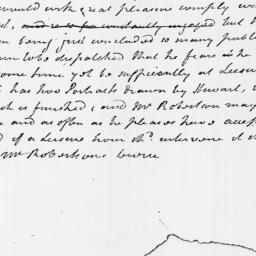 would with great pleasure comply w
, and is so constantly engaged but t
n being just concluded so many publi
to be dispatched that he fears in the
some time yet be sufficiently at Leisure
has two Portraits drawn by Stewart,
is finished, and Mr Robertson may
and as often as he pleases have acce
d if a Leisure hour shd. intervene it w
Mr Robertson's